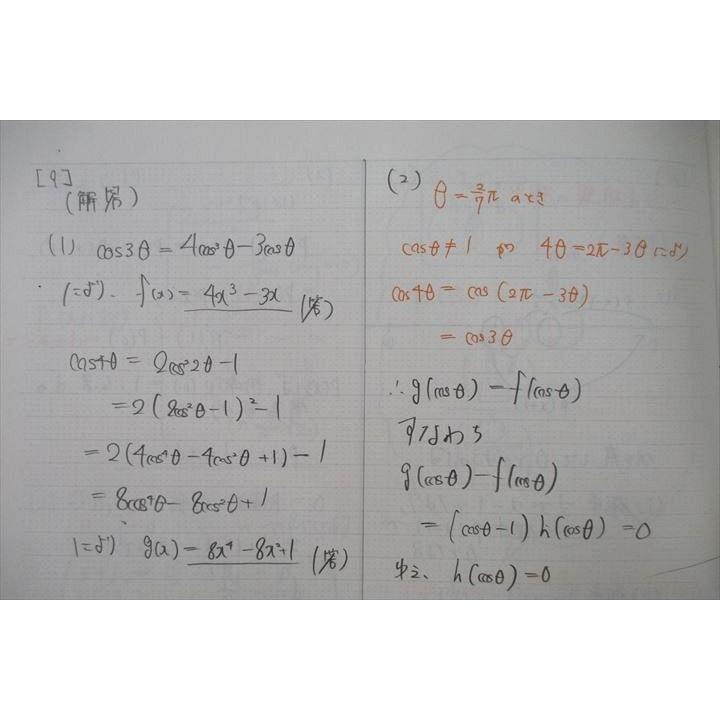 [9]
(解答)
(1) cos3θ = 4cos³θ-3cosθ
により、 f(x) = 4x³-3x (答)
cos4θ = 2cos²2θ-1
= 2(2cos²θ-1)²-1
= 2(4cos⁴θ-4cos²θ+1)-1
= 8cos⁴θ-8cos²θ+1
により g(x) = 8x⁴-8x²+1 (答)
(2)
θ = 2/7π のとき
cosθ≠1 か 4θ=2π-3θ により
cos4θ = cos(2π-3θ)
= cos3θ
∴ g(cosθ) - f(cosθ)
すなわち
g(cosθ)-f(cosθ)
= (cosθ-1) h(cosθ) =0
ゆえ、 h(cosθ)=0